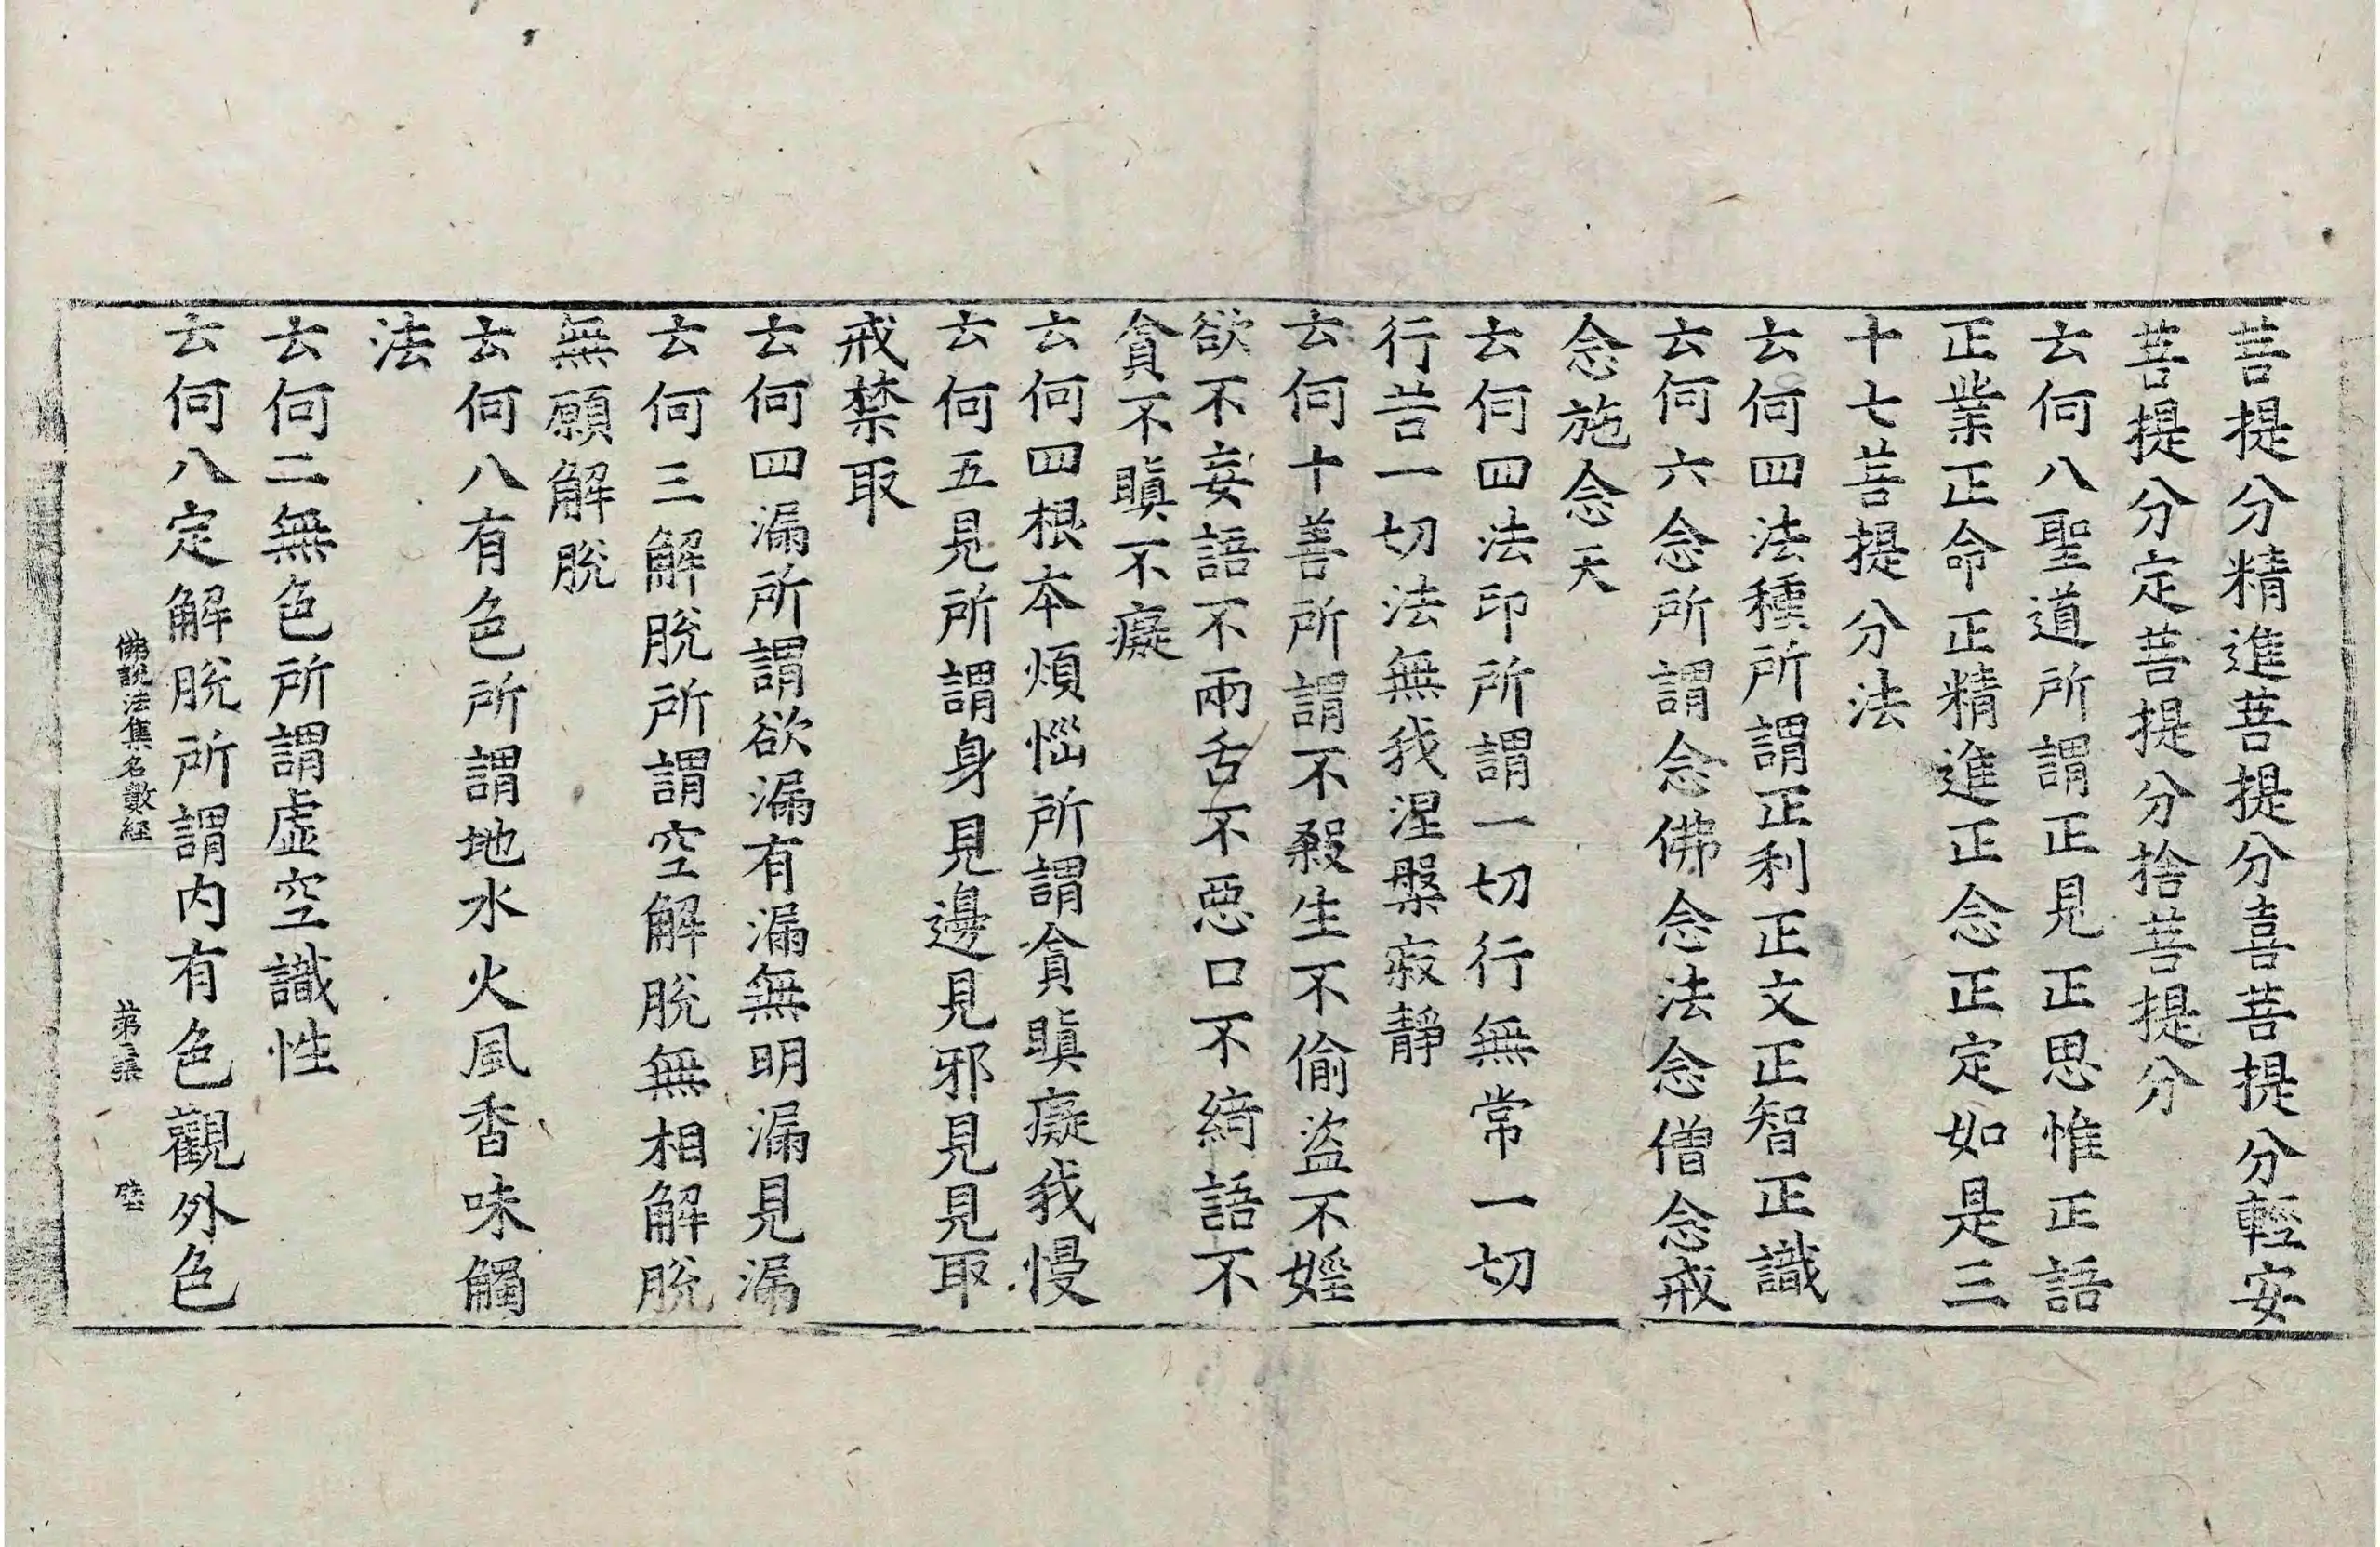 菩提分精進菩提分喜菩提分輕安
菩提分定菩提分捨菩提分
云何八聖道所謂正見正思惟正語
正業正命正精進正念正定如是三
十七菩提分法
云何四法種所謂正利正文正智正識
云何六念所謂念佛念法念僧念戒
念施念天
云何四法印所謂一切行無常一切
行苦一切法無我涅槃寂靜
云何十善所謂不殺生不偷盜不婬
欲不妄語不兩舌不惡口不綺語不
貪不瞋不癡
云何四根本煩惱所謂貪瞋癡我慢
云何五見所謂身見邊見邪見見取
戒禁取
云何四漏所謂欲漏有漏無明漏見漏
云何三解脫所謂空解脫無相解脫
無願解脫
云何八有色所謂地水火風香味觸
法
云何二無色所謂虛空識性
云何八定解脫所謂內有色觀外色
佛說法集名數經 第三張